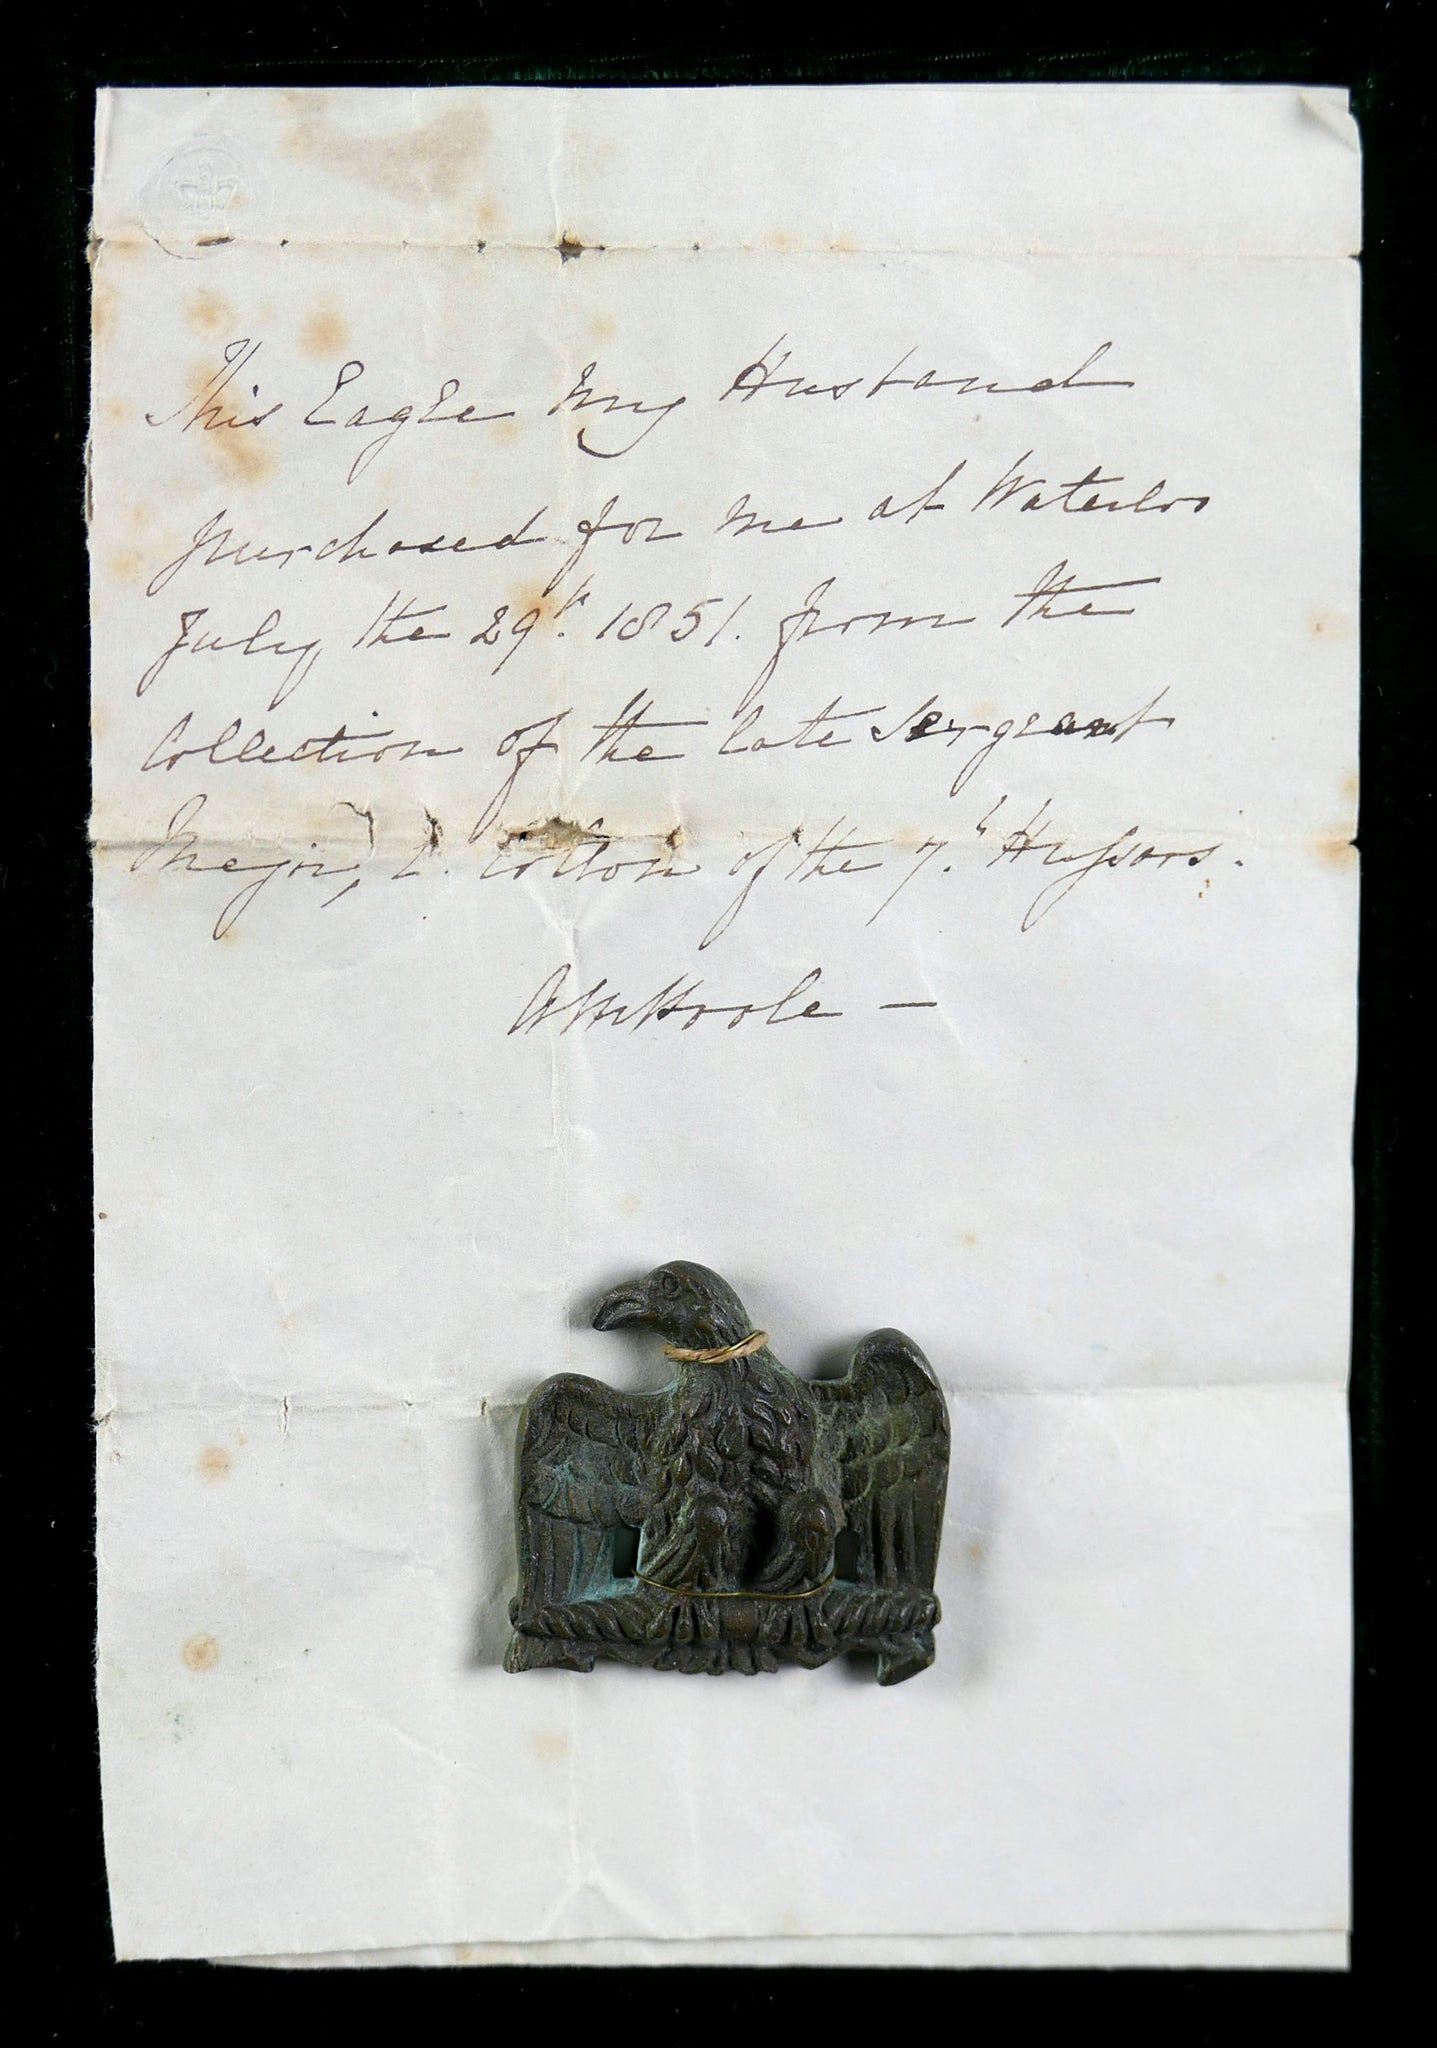 This Eagle my Husband
purchased for me at Waterloo
July, the 29th. 1851. from the
Collection of the late Sergeant
Major, E. Cotton of the 7.th Hussars.